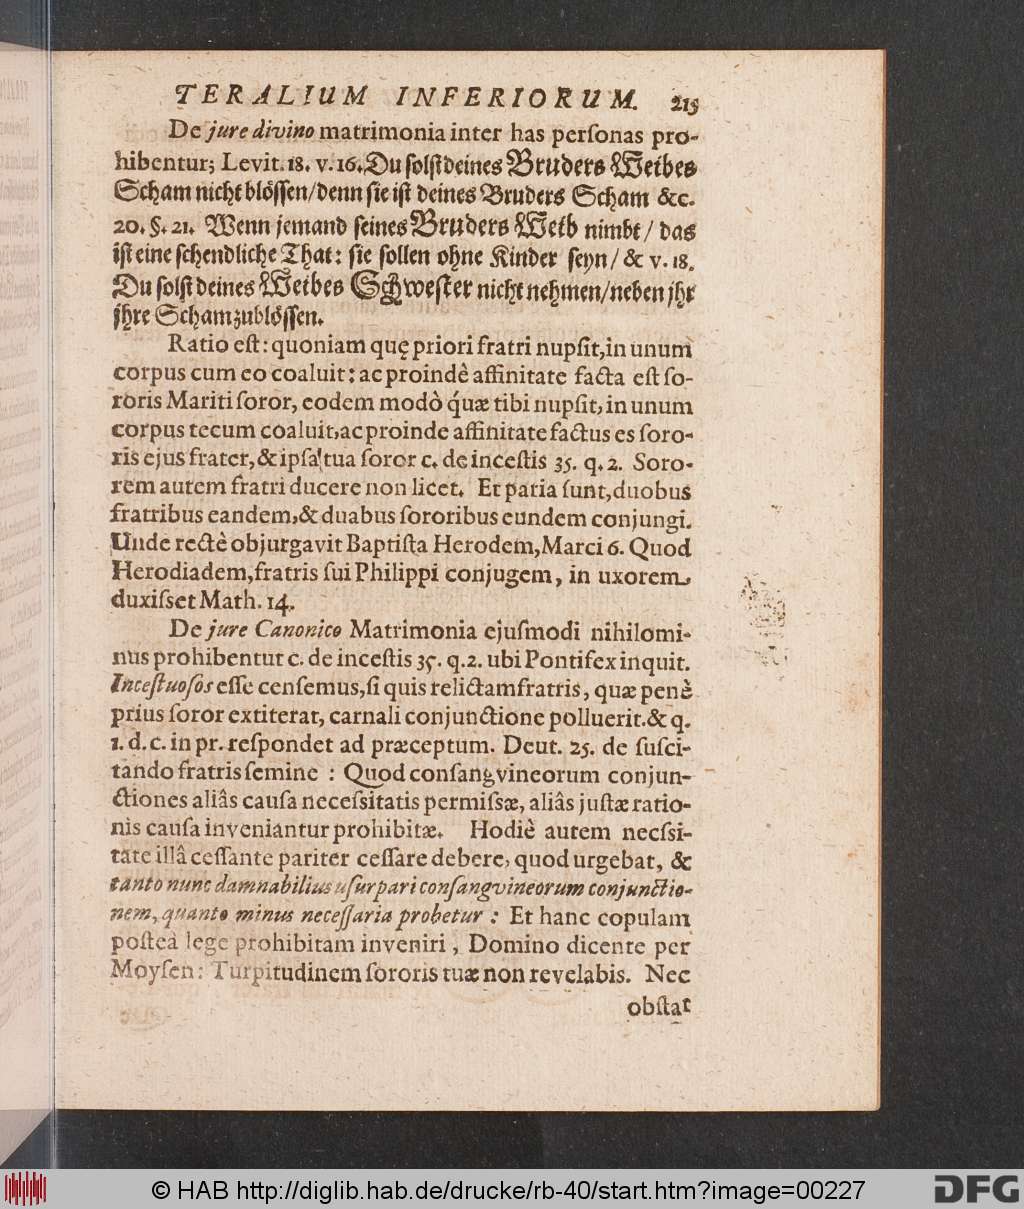 TERALIUM INFERIORUM. 215
De jure divino matrimonia inter has perſonas pro-
hibentur; Levit. 18. v. 16. Du ſolſt deines Bruders Weibes
Scham nicht blöſſen/denn ſie iſt deines Bruders Scham &c.
20. §. 21. Wenn jemand ſeines Bruders Weib nimbt / das
iſt eine ſchendliche That: ſie ſollen ohne Kinder ſeyn/ & v. 18.
Du ſolſt deines Weibes Schweſter nicht nehmen/neben jhr
jhre Scham zublöſſen.
Ratio eſt: quoniam quę priori fratri nupſit, in unum
corpus cum eo coaluit: ac proindè affinitate facta eſt ſo-
roris Mariti ſoror, eodem modò q́uæ tibi nupſit, in unum
corpus tecum coaluit, ac proinde affinitate factus es ſoro-
ris ejus frater, & ipſa tua ſoror c. de inceſtis 35. q. 2. Soro-
rem autem fratri ducere non licet. Et paria ſunt, duobus
fratribus eandem, & duabus ſororibus eundem conjungi.
Unde rectè objurgavit Baptiſta Herodem, Marci 6. Quod
Herodiadem, fratris ſui Philippi conjugem, in uxorem
duxiſset Math. 14.
De jure Canonico Matrimonia ejuſmodi nihilomi-
nus prohibentur c. de inceſtis 35. q. 2. ubi Pontifex inquit.
Inceſtuoſos eſſe cenſemus, ſi quis relictam fratris, quæ penè
prius ſoror extiterat, carnali conjunctione polluerit. & q.
1. d. c. in pr. reſpondet ad præceptum. Deut. 25. de ſuſci-
tando fratris ſemine : Quod conſangvineorum conjun-
ctiones aliâs cauſa neceſsitatis permiſsæ, aliâs juſtæ ratio-
nis cauſa inveniantur prohibitæ. Hodiè autem necſsi-
tate illâ ceſſante pariter ceſſare debere, quod urgebat, &
tanto nunc damnabilius uſurpari conſangvineorum conjunctio-
nem, quanto minus neceſſaria probetur : Et hanc copulam
poſteà lege prohibitam inveniri, Domino dicente per
Moyſen: Turpitudinem ſororis tuæ non revelabis. Nec
obſtat
© HAB http://diglib.hab.de/drucke/rb-40/start.htm?image=00227
DFG